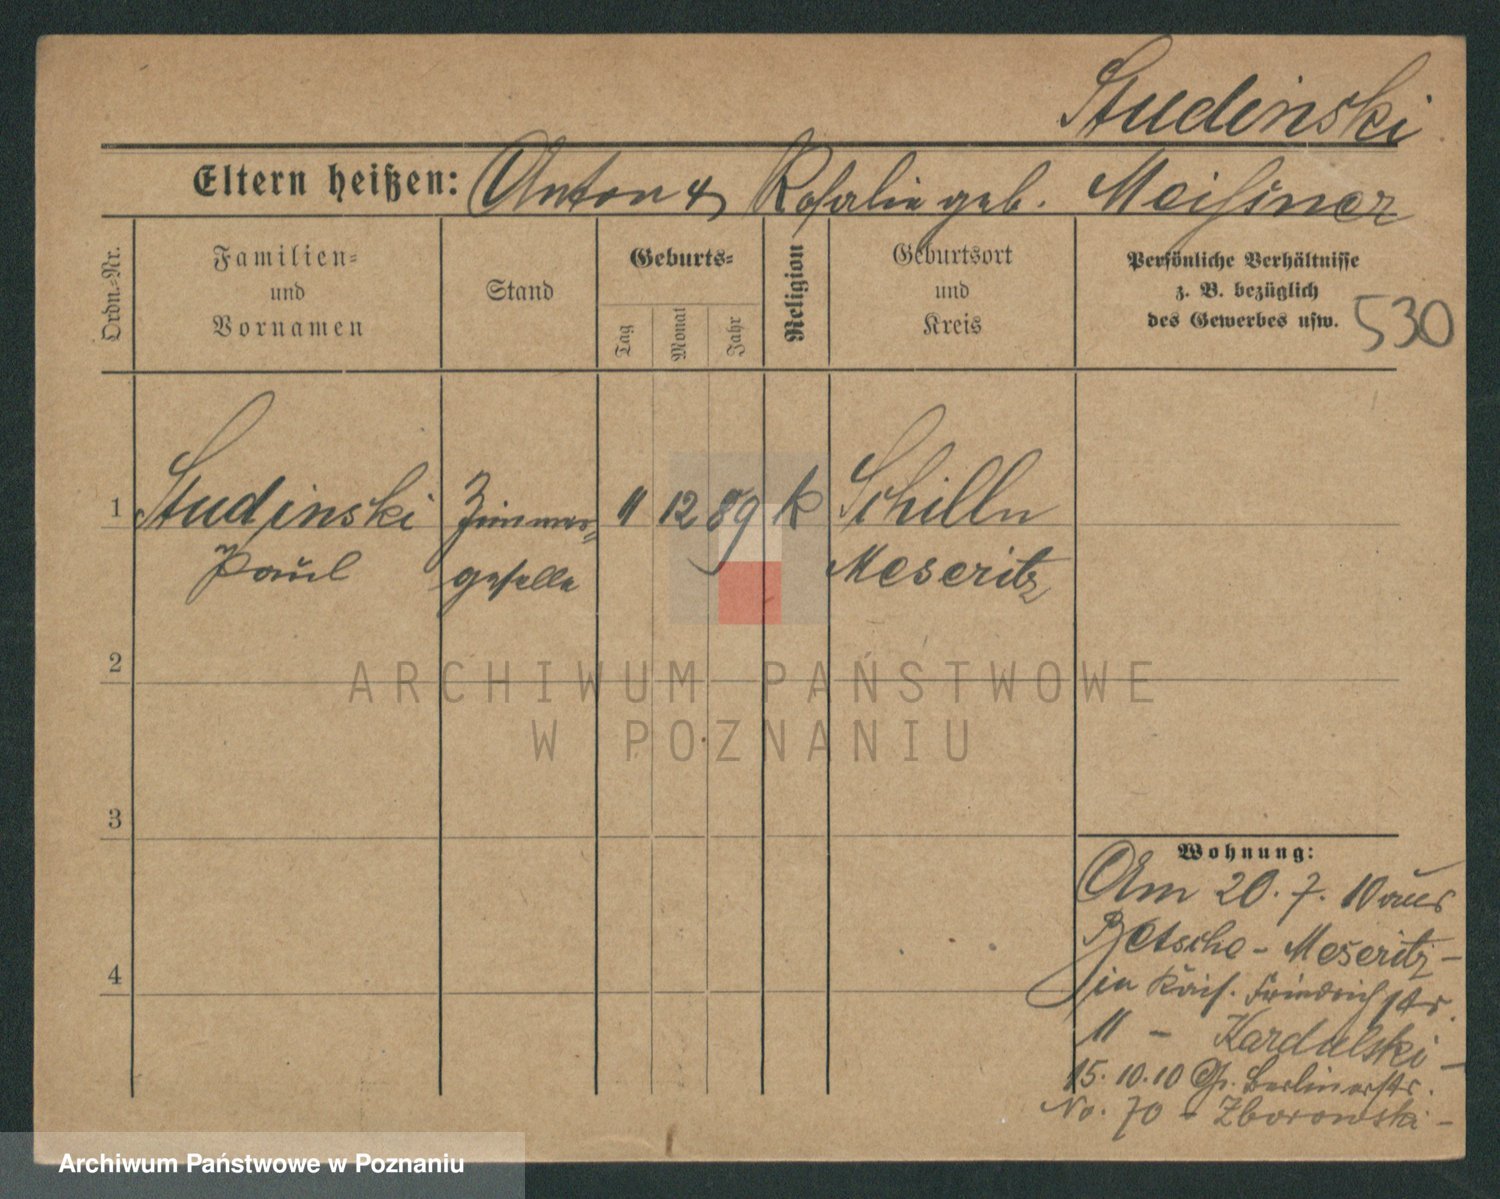 Studinski
Eltern heißen: Anton & Rosalie geb. Meißner
Ordn.-Nr.
Familien-
und
Vornamen
Stand
Geburts-
Tag
Monat
Jahr
Religion
Geburtsort
und
Kreis
Persönliche Verhältnisse
z. B. bezüglich
des Gewerbes usw.
530
1 Studzinski Zimmer- 11 12 89 k Schilln
Paul geselle Meseritz
2
ARCHIWUM PAŃSTWOWE
W POZNANIU
3
4
Wohnung:
Am 20. 7. 10 aus
Betsche - Meseritz -
in Kais. Friedrichstr.
11 - Kardulski -
15. 10. 10 Gr. Berlinerstr.
No. 70 - Zborowski -
Archiwum Państwowe w Poznaniu